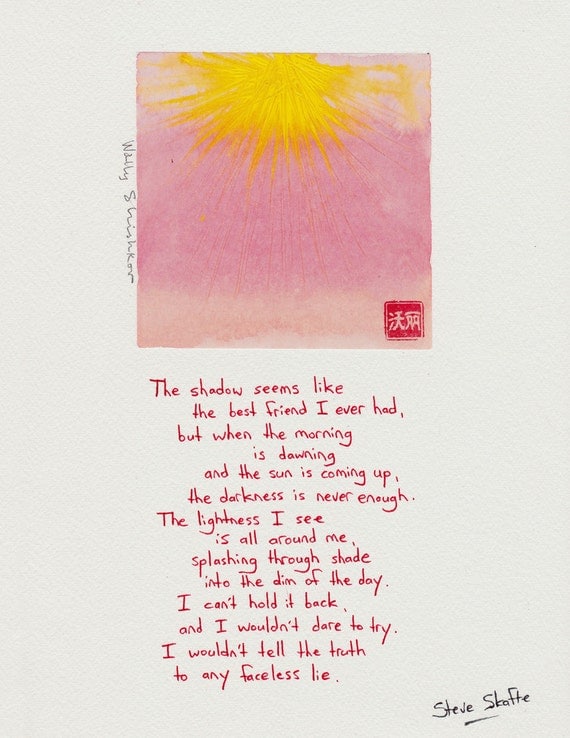 Wally Shishkov
沃丽
The shadow seems like
the best friend I ever had,
but when the morning
is dawning
and the sun is coming up,
the darkness is never enough.
The lightness I see
is all around me,
splashing through shade
into the dim of the day.
I can't hold it back,
and I wouldn't dare to try.
I wouldn't tell the truth
to any faceless lie.
Steve Skafte